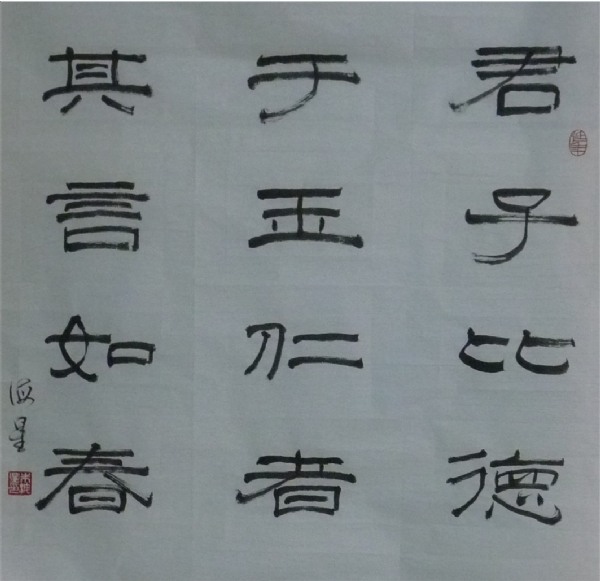 君子比德
于玉仁者
其言如春
海星